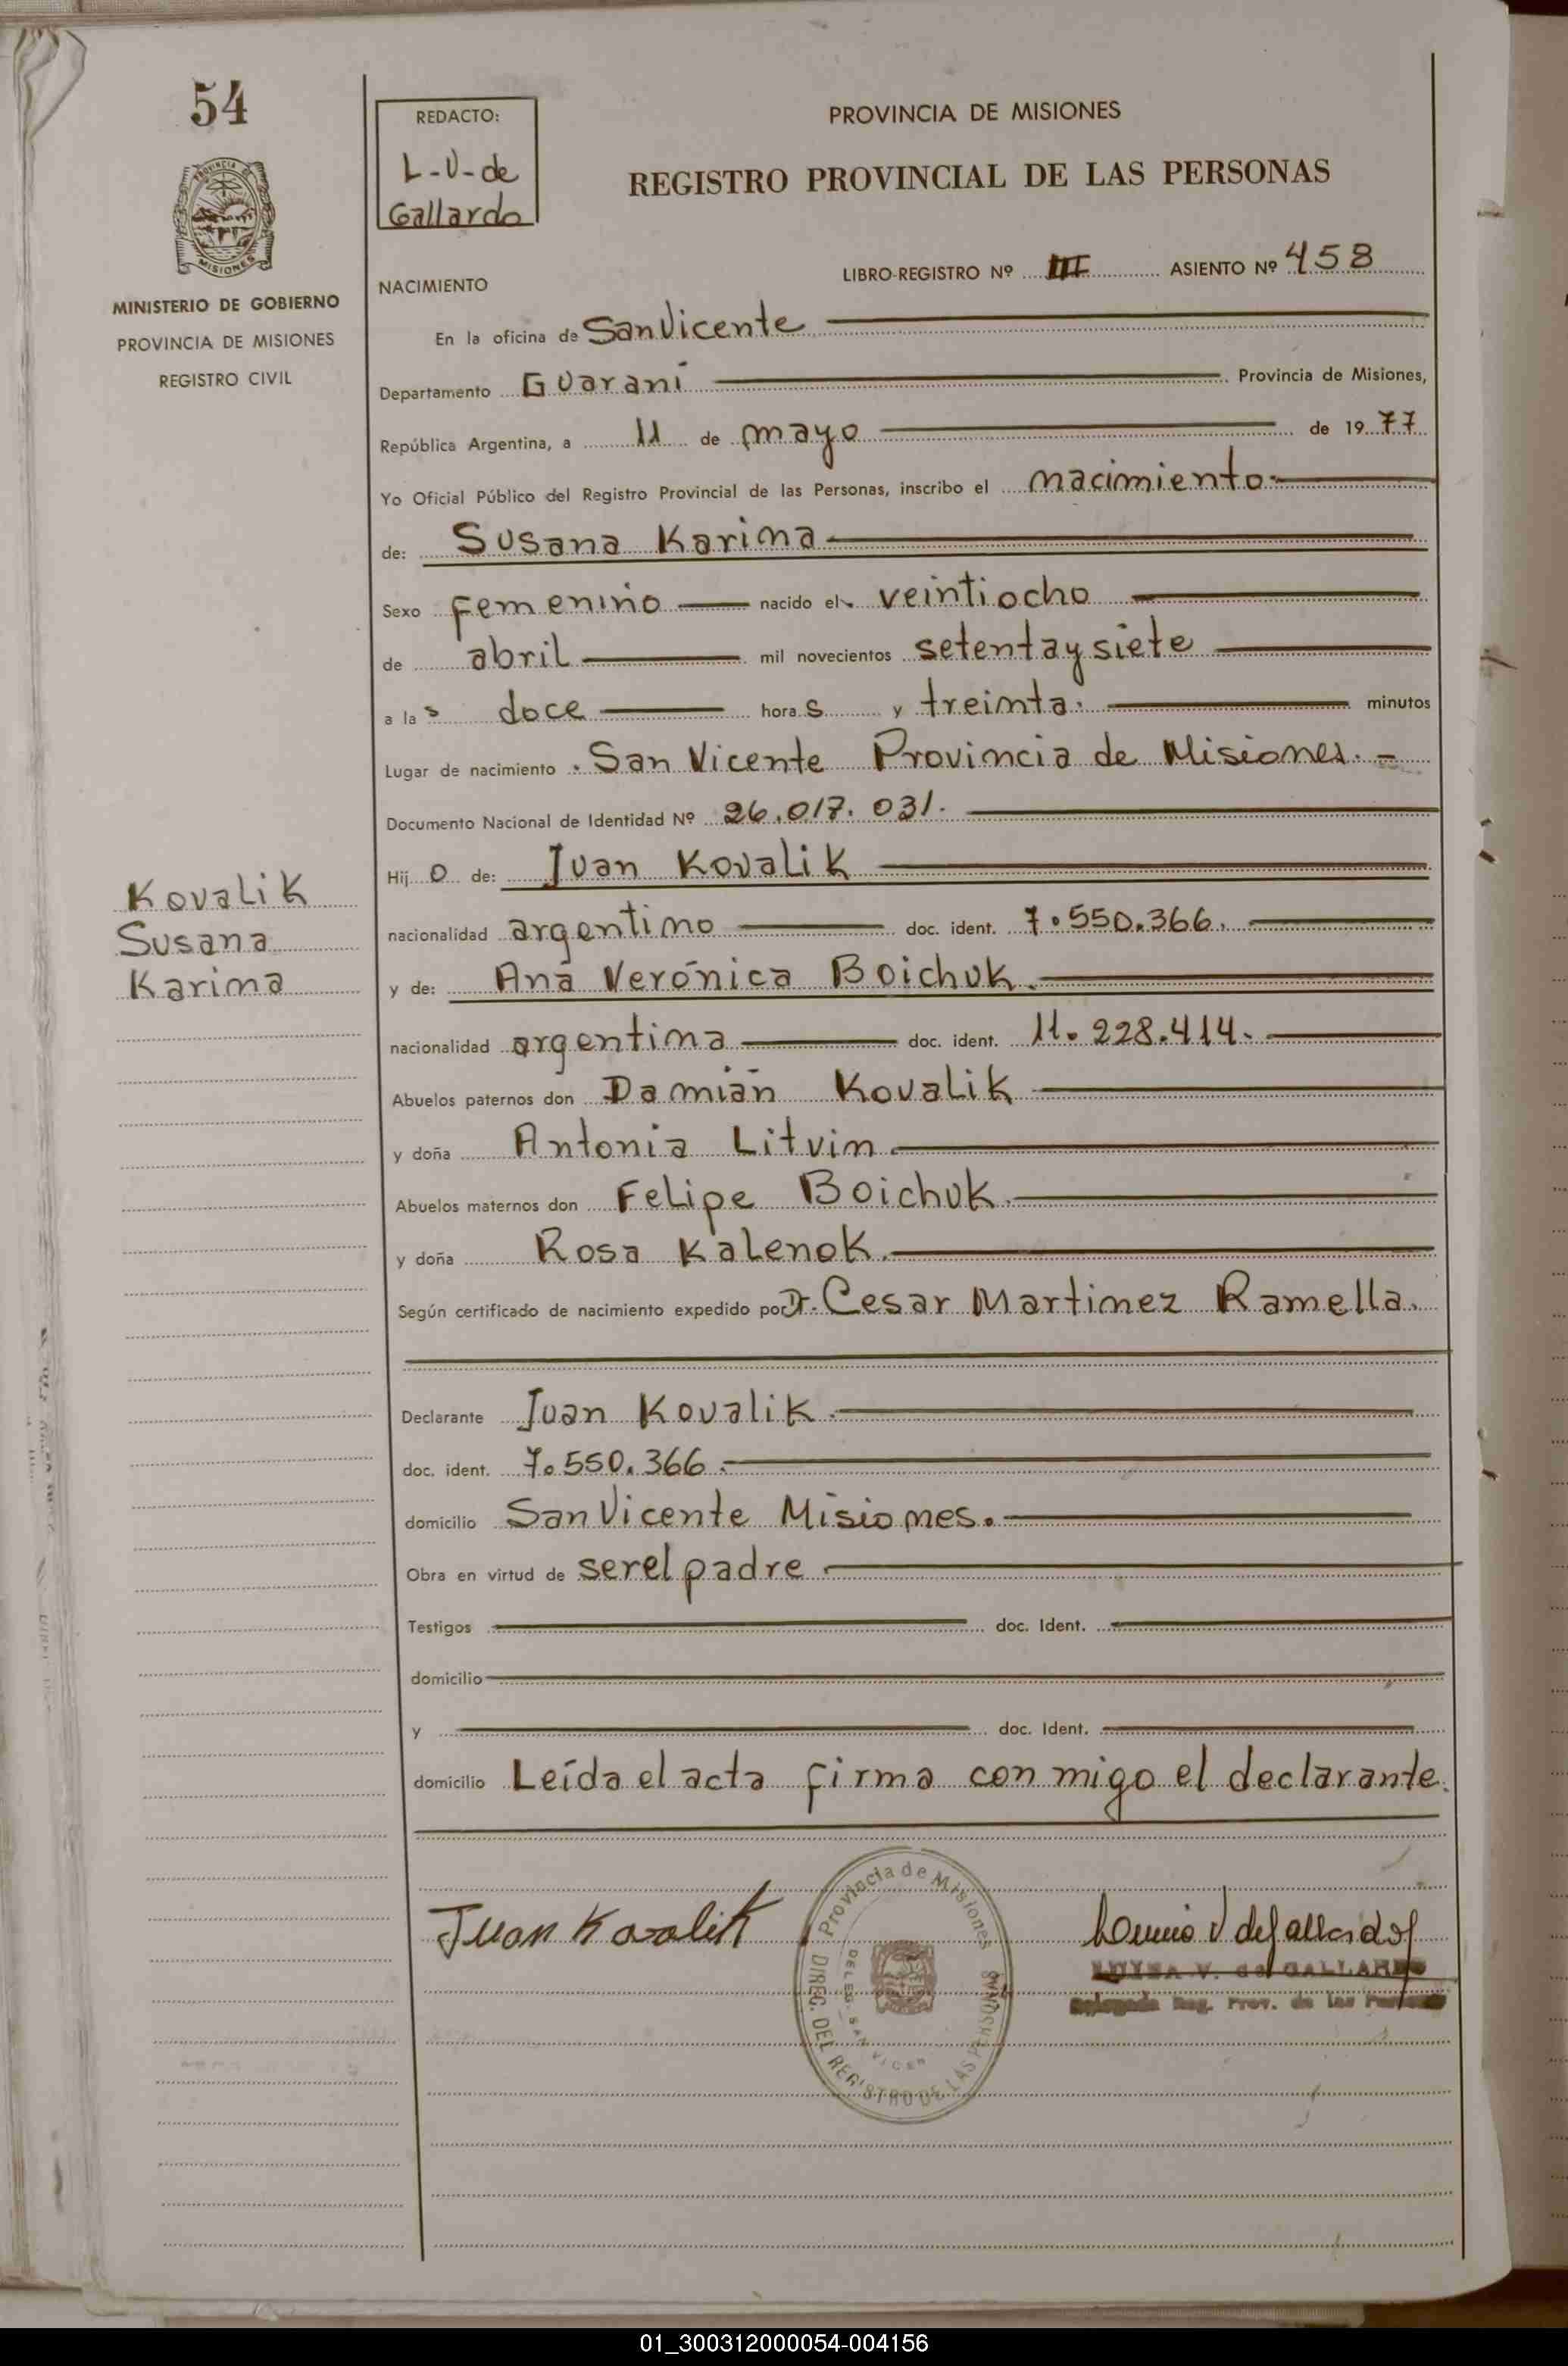 54
PROVINCIA
MISIONES
MINISTERIO DE GOBIERNO
PROVINCIA DE MISIONES
REGISTRO CIVIL
Kovalik
Susana
Karina
REDACTO:
L-V-de
Gallardo
PROVINCIA DE MISIONES
REGISTRO PROVINCIAL DE LAS PERSONAS
LIBRO-REGISTRO Nº III ASIENTO Nº 458
NACIMIENTO
En la oficina de San Vicente
Departamento Guaraní Provincia de Misiones,
República Argentina, a 11 de mayo de 1977
Yo Oficial Público del Registro Provincial de las Personas, inscribo el nacimiento
de: Susana Karina
Sexo femenino nacido el veintiocho
de abril mil novecientos setenta y siete
a las doce horas y treinta. minutos
Lugar de nacimiento . San Vicente Provincia de Misiones. -
Documento Nacional de Identidad Nº 26.017.031.
Hijo de: Juan Kovalik
nacionalidad argentino doc. ident. 7.550.366.
y de: Ana Verónica Boichuk.
nacionalidad argentina doc. ident. 11.228.414.
Abuelos paternos don Damián Kovalik
y doña Antonia Litvin
Abuelos maternos don Felipe Boichuk.
y doña Rosa Kalenok.
Según certificado de nacimiento expedido por Dr. Cesar Martinez Ramella.
Declarante Juan Kovalik.
doc. ident. 7.550.366.
domicilio San Vicente Misiones.
Obra en virtud de ser el padre
Testigos doc. Ident.
domicilio
y doc. Ident.
domicilio Leída el acta firma con migo el declarante.
Juan Kovalik
Provincia de Misiones
DIREC. DEL REGISTRO DE LAS PERSONAS
DELEG. SAN VICEN
V de Gallardo
V. de GALLARDO
Delegada Reg. Prov. de las Personas
01_300312000054-004156